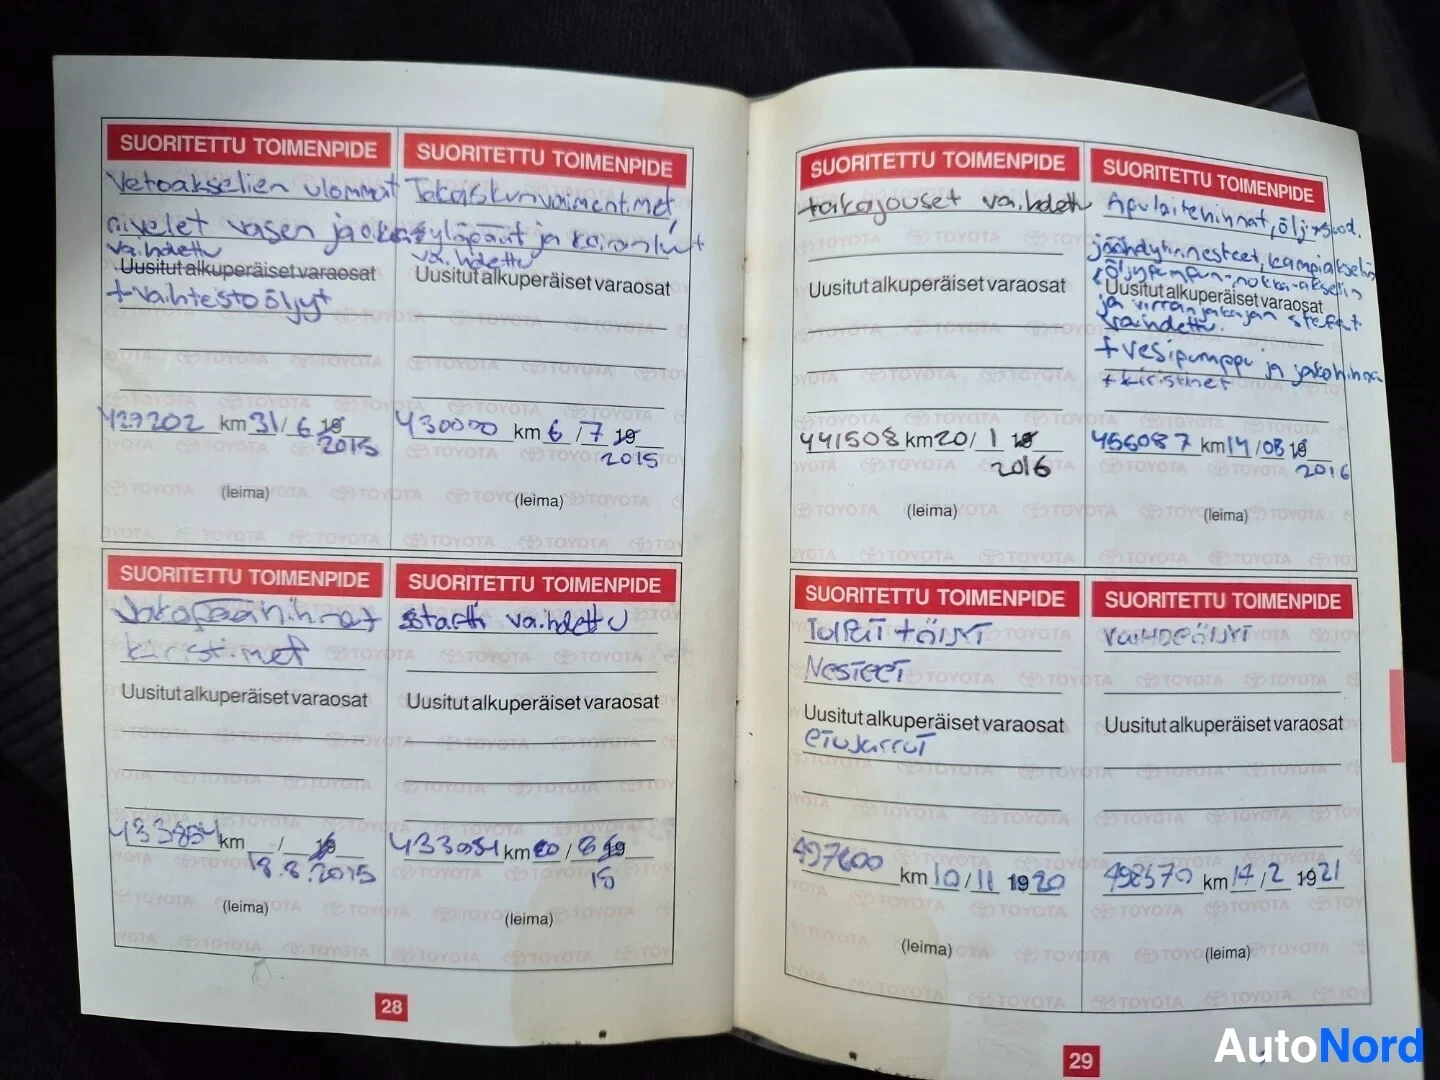 SUORITETTU TOIMENPIDE
Vetoakselien ulommat
nivelet vasen ja oikea
vaihdettu
Uusitut alkuperäiset varaosat
+ vaihteistoöljyt
427202 km 31/6 19
2015
(leima)
SUORITETTU TOIMENPIDE
Takaiskunvaimentimet,
yläpäät ja
vaihdettu
Uusitut alkuperäiset varaosat
430000 km 6/7 19
2015
(leima)
SUORITETTU TOIMENPIDE
Jakopäänhihnat
kiristimet
Uusitut alkuperäiset varaosat
km / 19
18.8.2015
(leima)
SUORITETTU TOIMENPIDE
Startti vaihdettu
Uusitut alkuperäiset varaosat
km 20/8 19
15
(leima)
28
SUORITETTU TOIMENPIDE
takajouset vaihdettu
Uusitut alkuperäiset varaosat
441508 km 20/1 19
2016
(leima)
SUORITETTU TOIMENPIDE
Apulaitehihnat, öljyt+suod.
jäähdytinnesteet, kampiakselin
öljypumpun-nokka-akselin
Uusitut alkuperäiset varaosat
ja virranjakajan stefat
vaihdettu.
+ vesipumppu ja jakohihna
+ kiristimet
456087 km 14/08 19
2016
(leima)
SUORITETTU TOIMENPIDE
TULPAT + ÖLJYT
NESTEET
Uusitut alkuperäiset varaosat
ETUJARRUT
497600 km 10/11 1920
(leima)
SUORITETTU TOIMENPIDE
VAIHDEÖLJYT
Uusitut alkuperäiset varaosat
498570 km 17/2 1921
(leima)
29
AutoNord